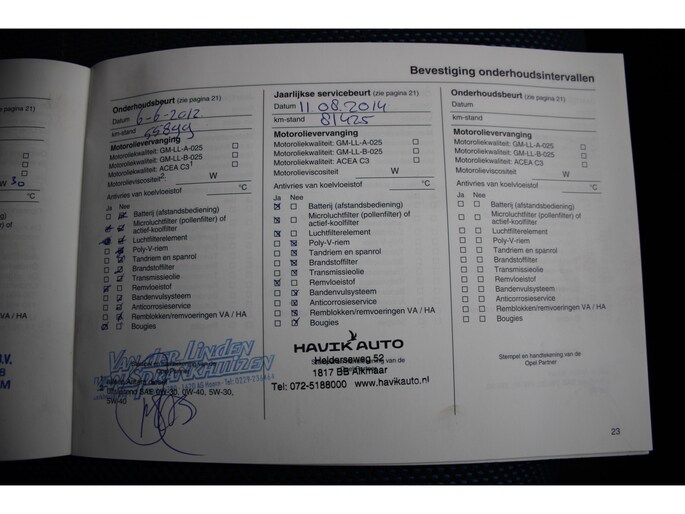 Bevestiging onderhoudsintervallen
W 30
Onderhoudsbeurt (zie pagina 21)
Datum 6-6-2012
km-stand 55899
Motorolievervanging
Motoroliekwaliteit: GM-LL-A-025
Motoroliekwaliteit: GM-LL-B-025
Motoroliekwaliteit: ACEA C3 1
Motorolieviscositeit 2 W
Antivries van koelvloeistof °C
Ja Nee
Batterij (afstandsbediening)
Microluchtfilter (pollenfilter) of
actief-koolfilter
Luchtfilterelement
Poly-V-riem
Tandriem en spanrol
Brandstoffilter
Transmissieolie
Remvloeistof
Bandenvulsysteem
Anticorrosieservice
Remblokken/remvoeringen VA / HA
Bougies
Van der Linden
Van Sprankhuizen
5W-30,
Jaarlijkse servicebeurt (zie pagina 21)
Datum 11 08.2014
km-stand 81425
Motorolievervanging
Motoroliekwaliteit: GM-LL-A-025
Motoroliekwaliteit: GM-LL-B-025
Motoroliekwaliteit: ACEA C3
Motorolieviscositeit W
Antivries van koelvloeistof °C
Ja Nee
Batterij (afstandsbediening)
Microluchtfilter (pollenfilter) of
actief-koolfilter
Luchtfilterelement
Poly-V-riem
Tandriem en spanrol
Brandstoffilter
Transmissieolie
Remvloeistof
Bandenvulsysteem
Anticorrosieservice
Remblokken/remvoeringen VA / HA
Bougies
HAVIK AUTO
Helderseweg 52
1817 BB Alkmaar
Tel: 072-5188000 www.havikauto.nl
Onderhoudsbeurt (zie pagina 21)
Datum
km-stand
Motorolievervanging
Motoroliekwaliteit: GM-LL-A-025
Motoroliekwaliteit: GM-LL-B-025
Motoroliekwaliteit: ACEA C3
Motorolieviscositeit W
Antivries van koelvloeistof °C
Ja Nee
Batterij (afstandsbediening)
Microluchtfilter (pollenfilter) of
actief-koolfilter
Luchtfilterelement
Poly-V-riem
Tandriem en spanrol
Brandstoffilter
Transmissieolie
Remvloeistof
Bandenvulsysteem
Anticorrosieservice
Remblokken/remvoeringen VA / HA
Bougies
Stempel en handtekening van de
Opel Partner
23